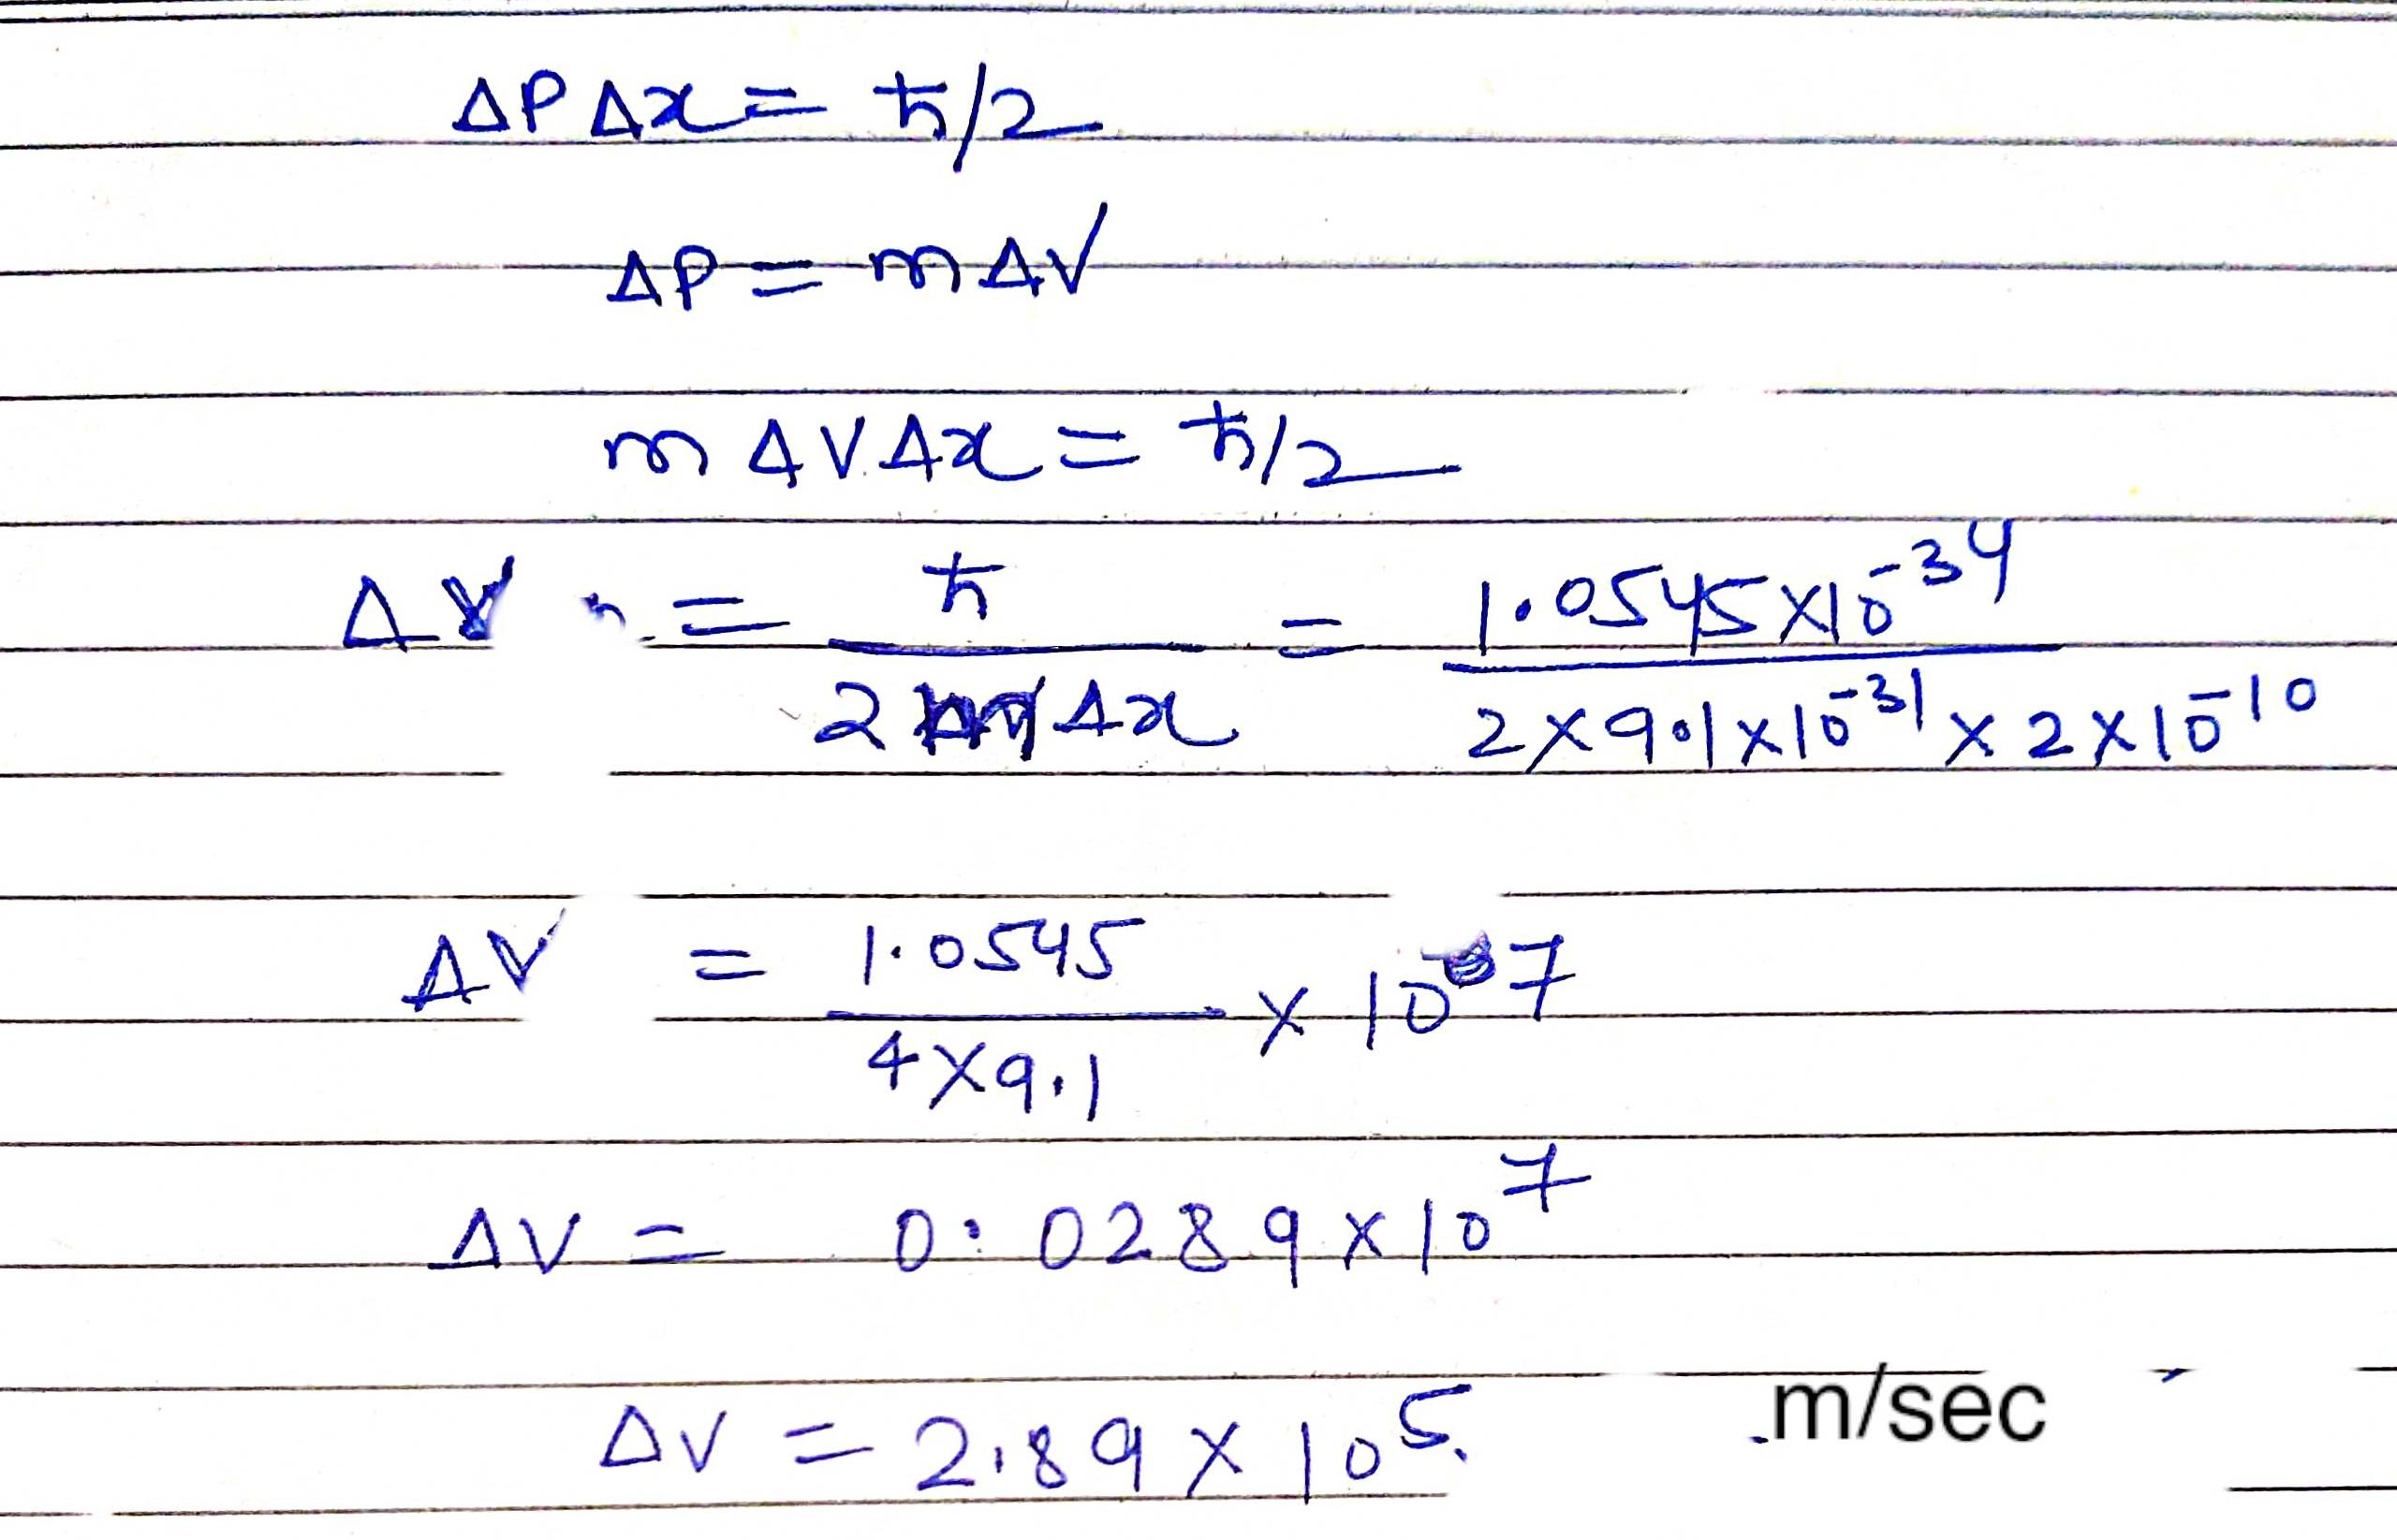 ΔP Δx = ħ/2
ΔP = mΔV
m ΔV Δx = ħ/2
ΔV = ħ / 2mΔx = 1.0545×10^-34 / 2×9.1×10^-31 × 2×10^-10
ΔV = 1.0545 / 4×9.1 × 10^7
ΔV = 0.0289×10^7
ΔV = 2.89 × 10^5. m/sec